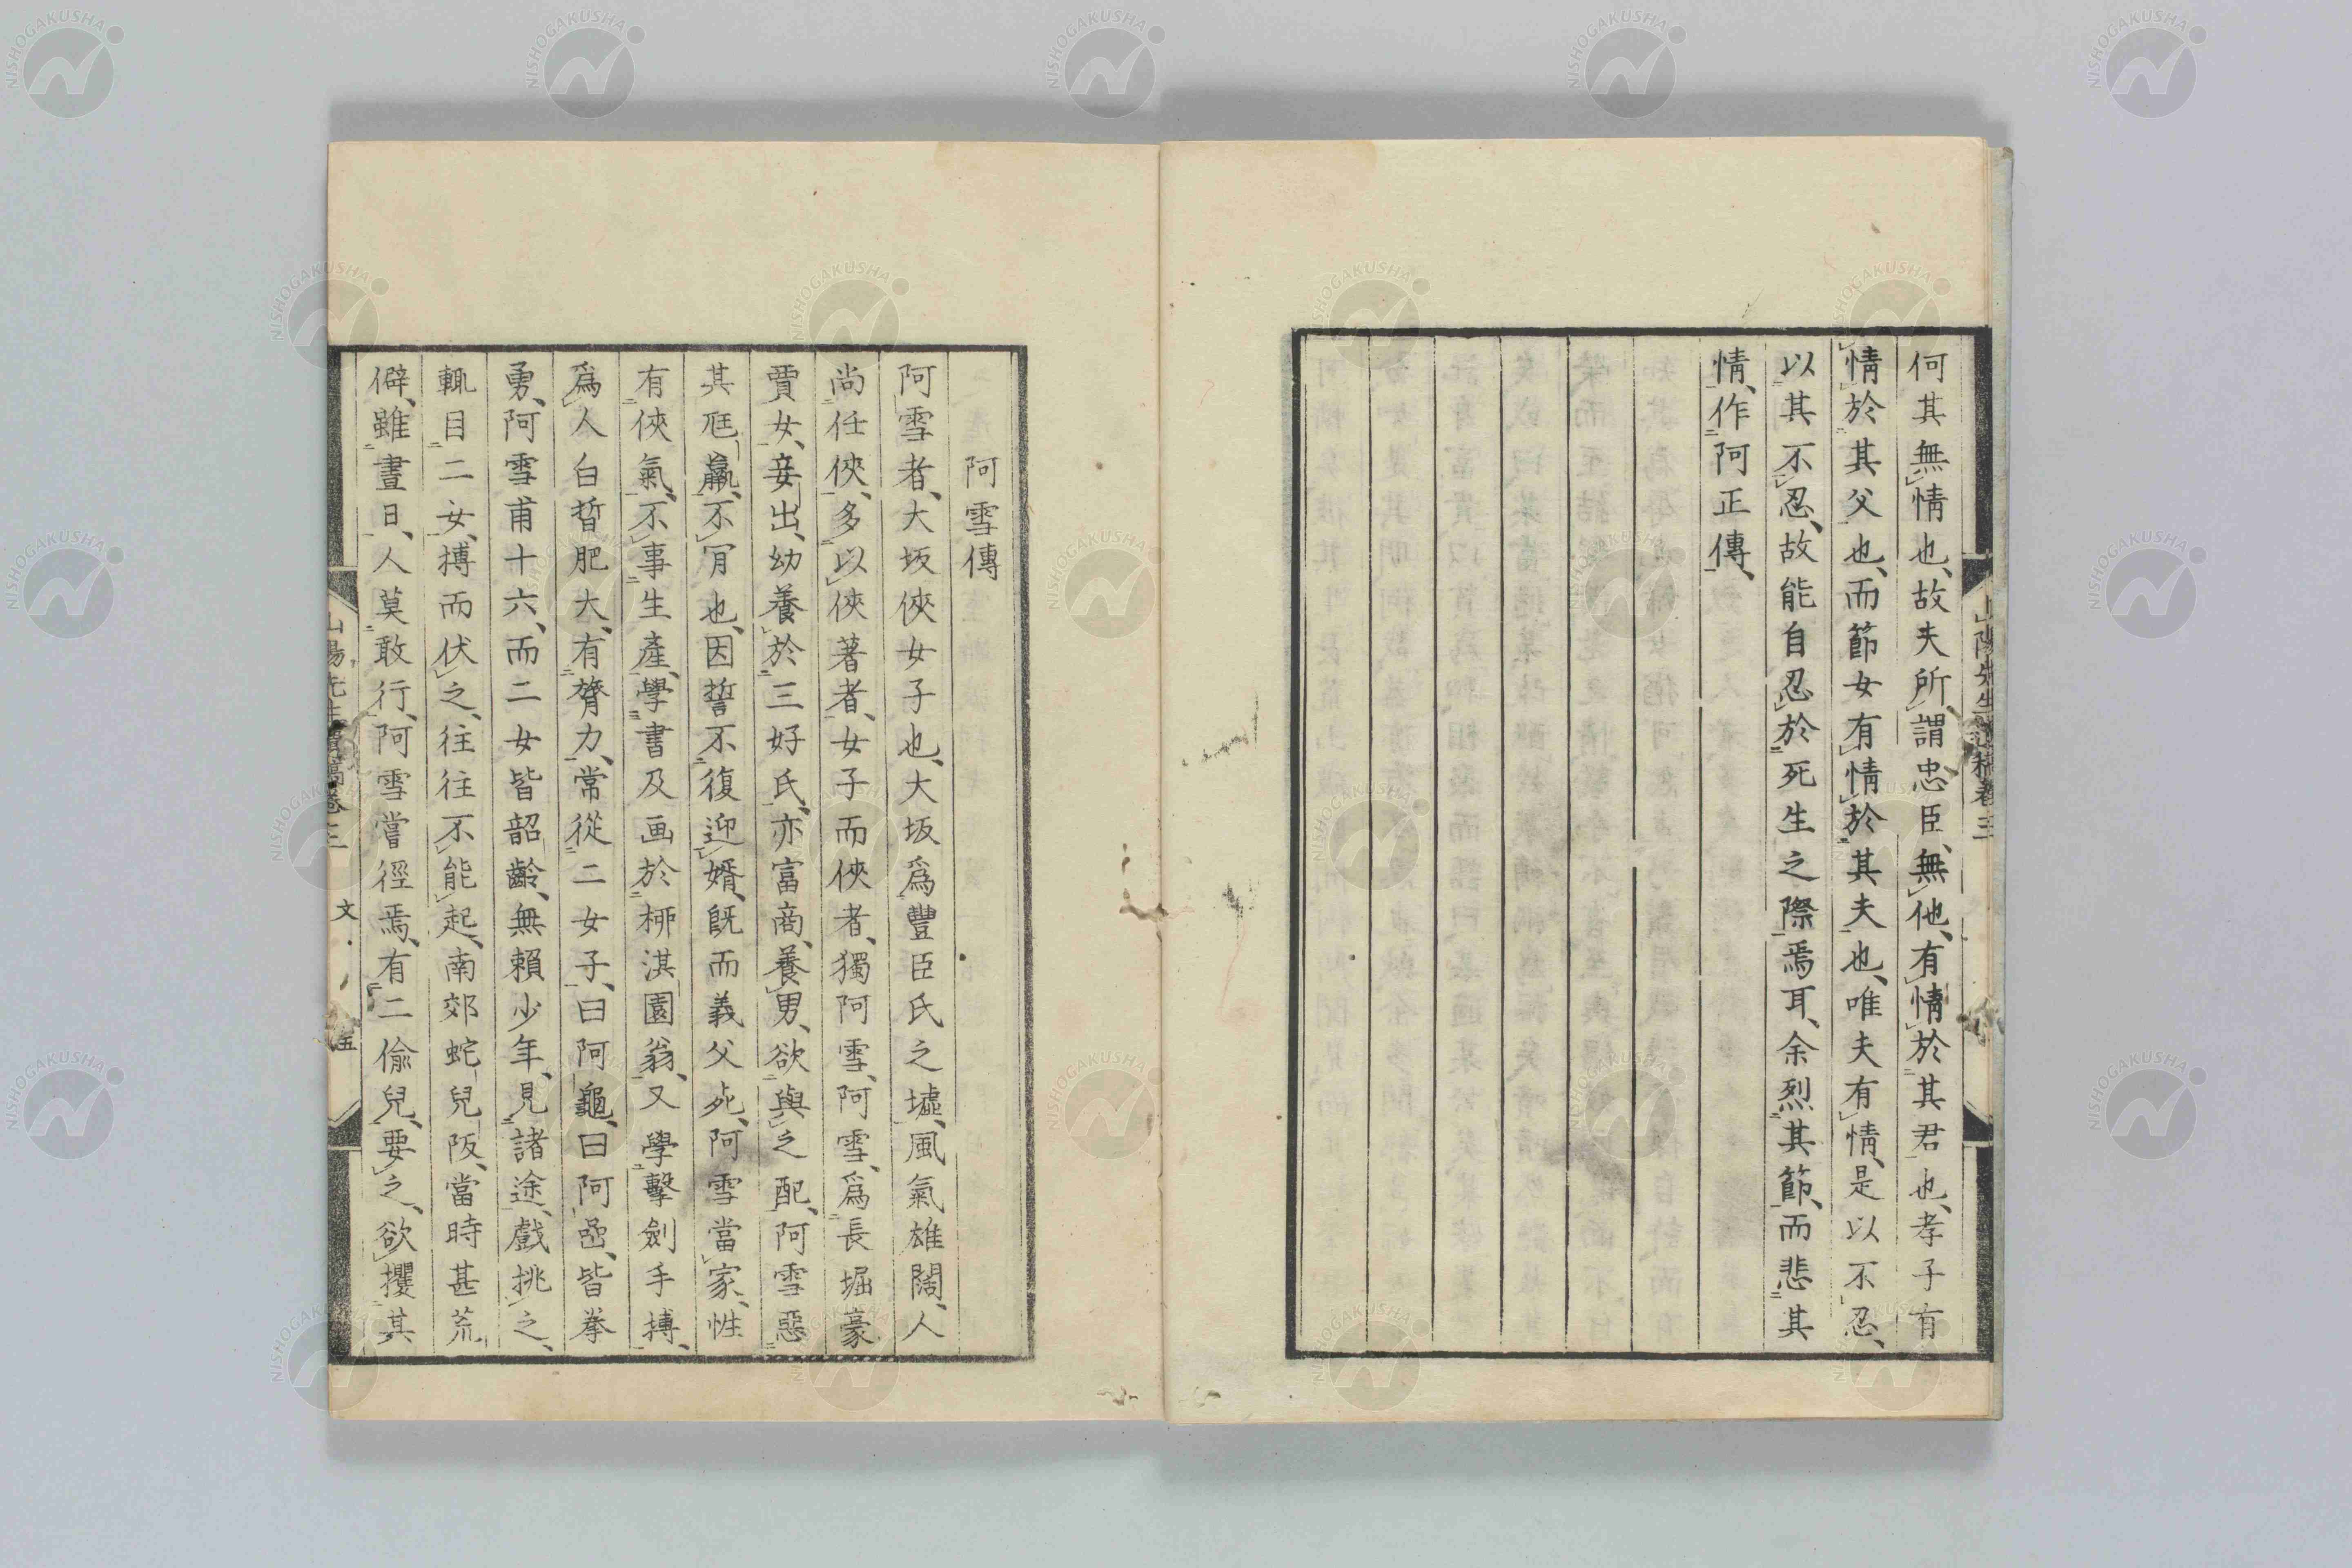 何其無情也、故夫所謂忠臣、無他、有情於其君也、孝子有
情於其父也、而節女有情於其夫也、唯夫有情、是以不忍、
以其不忍、故能自忍於死生之際焉耳、余烈其節、而悲其
情、作阿正傳、
山陽先生遺稿卷三
阿雪傳
阿雪者、大坂俠女子也、大坂爲豐臣氏之墟、風氣雄闊、人
尚任俠、多以俠著者、女子而俠者、獨阿雪、阿雪、爲長堀豪
賈女、妾出、幼養於三好氏、亦富商、養男、欲與之配、阿雪惡
其尪羸、不肎也、因誓不復迎婿、既而義父死、阿雪當家、性
有俠氣、不事生產、學書及画於栁淇園翁、又學擊劍手搏、
爲人白皙肥大、有膂力、常從二女子、曰阿龜、曰阿嵒、皆拳
勇、阿雪甫十六、而二女皆韶齡、無賴少年、見諸途、戲挑之、
輒目二女、搏而伏之、往往不能起、南郊蛇兒阪、當時甚荒
僻、雖晝日、人莫敢行、阿雪嘗徑焉、有二偷兒、要之、欲攫其
文
五
NISHOGAKUSHA